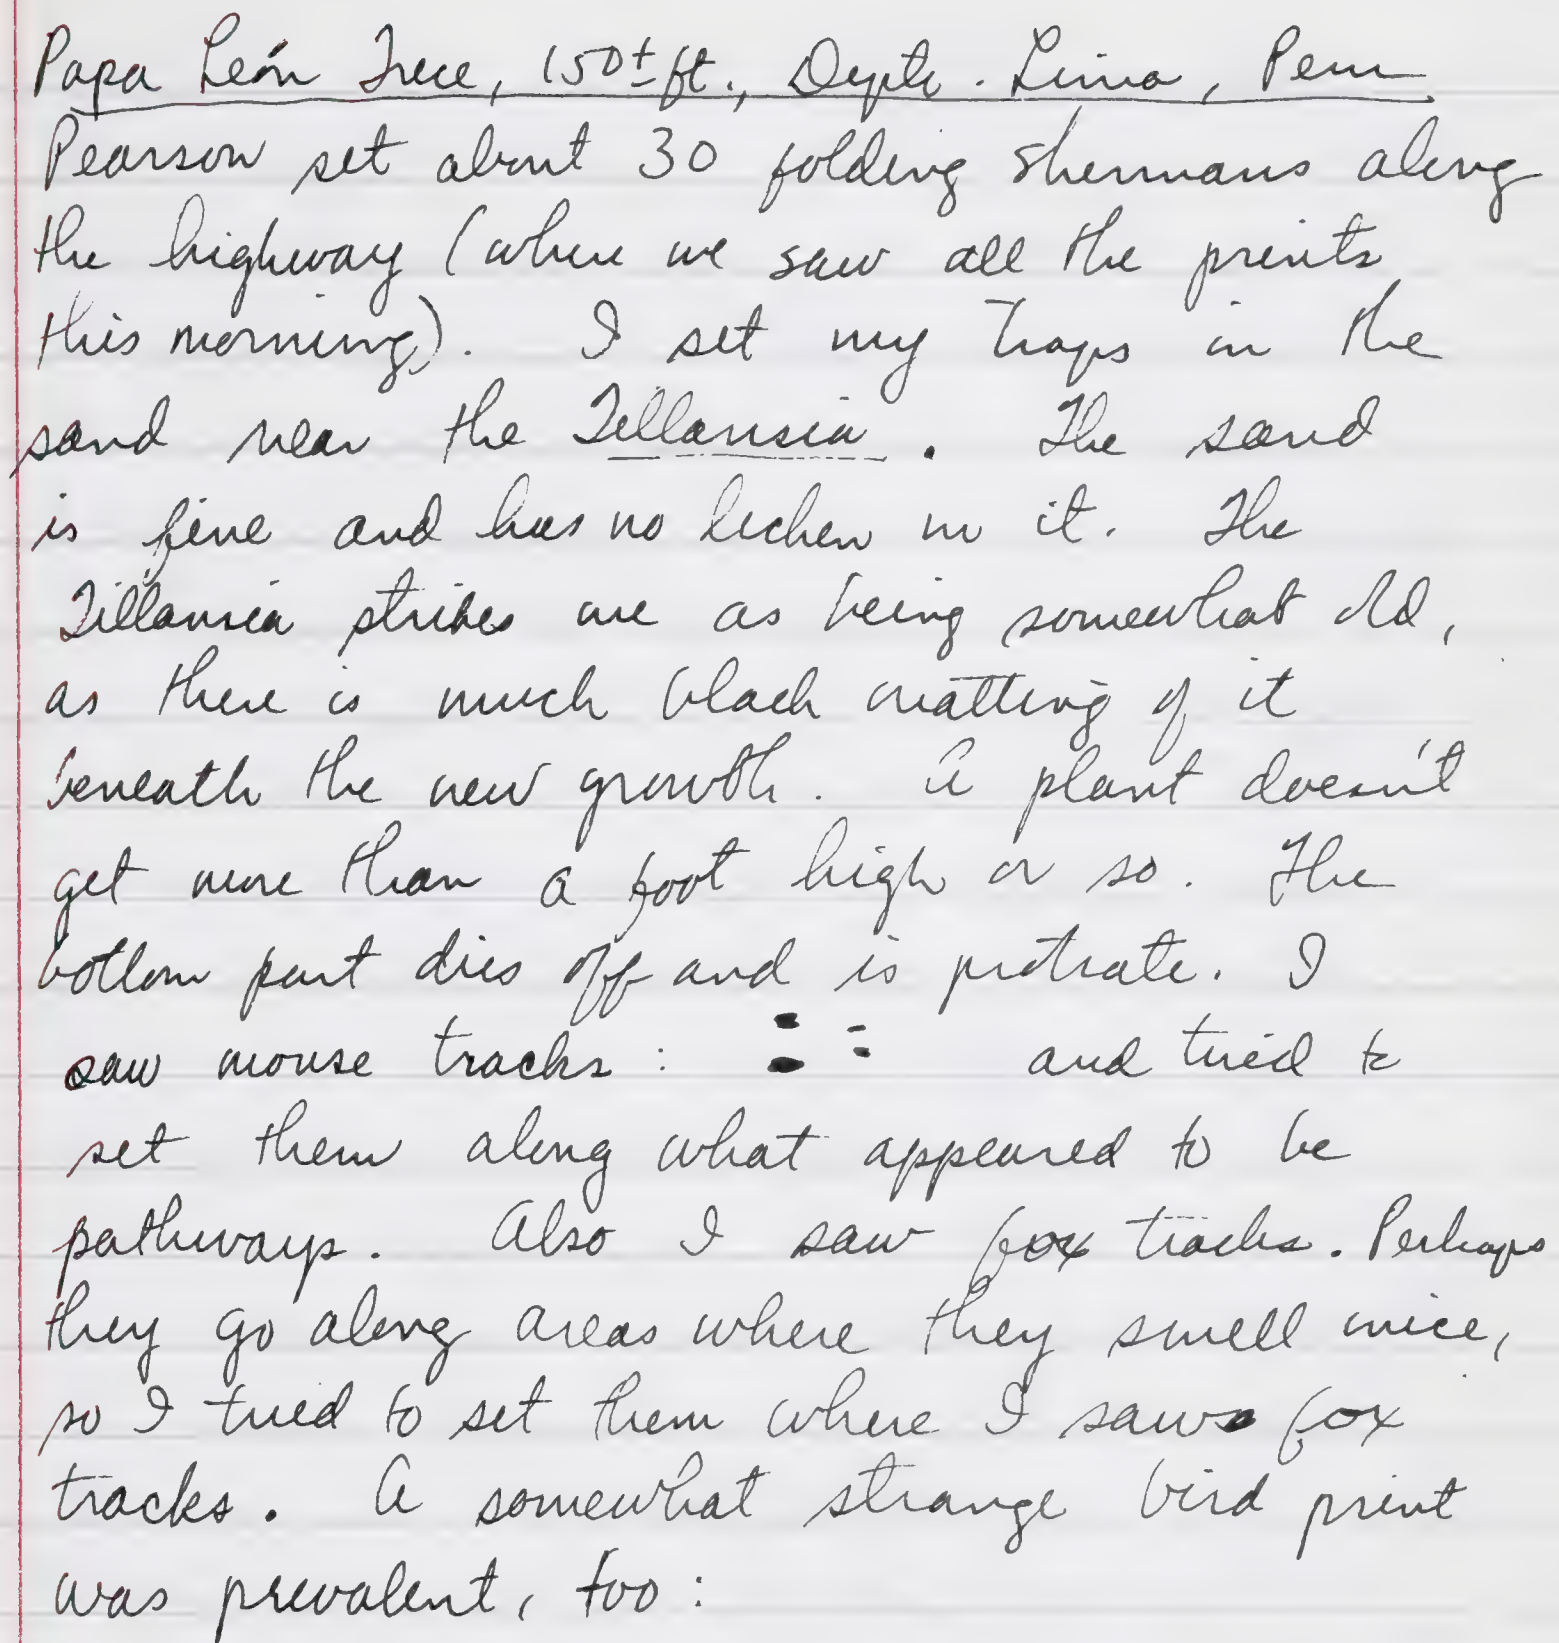 Papa León Trece, 150± ft., Depto. Lima, Peru
Pearson set about 30 folding shermans along
the highway (where we saw all the prints
this morning). I set my traps in the
sand near the Tillansia. The sand
is fine and has no lichen in it. The
Tillansia strikes me as being somewhat old,
as there is much black matting of it
beneath the new growth. A plant doesn't
get more than a foot high or so. The
bottom part dies off and is protrate. I
saw mouse tracks: and tried to
set them along what appeared to be
pathways. Also I saw fox tracks. Perhaps
they go along areas where they smell mice,
so I tried to set them where I saw fox
tracks. A somewhat strange bird print
was prevalent, too: